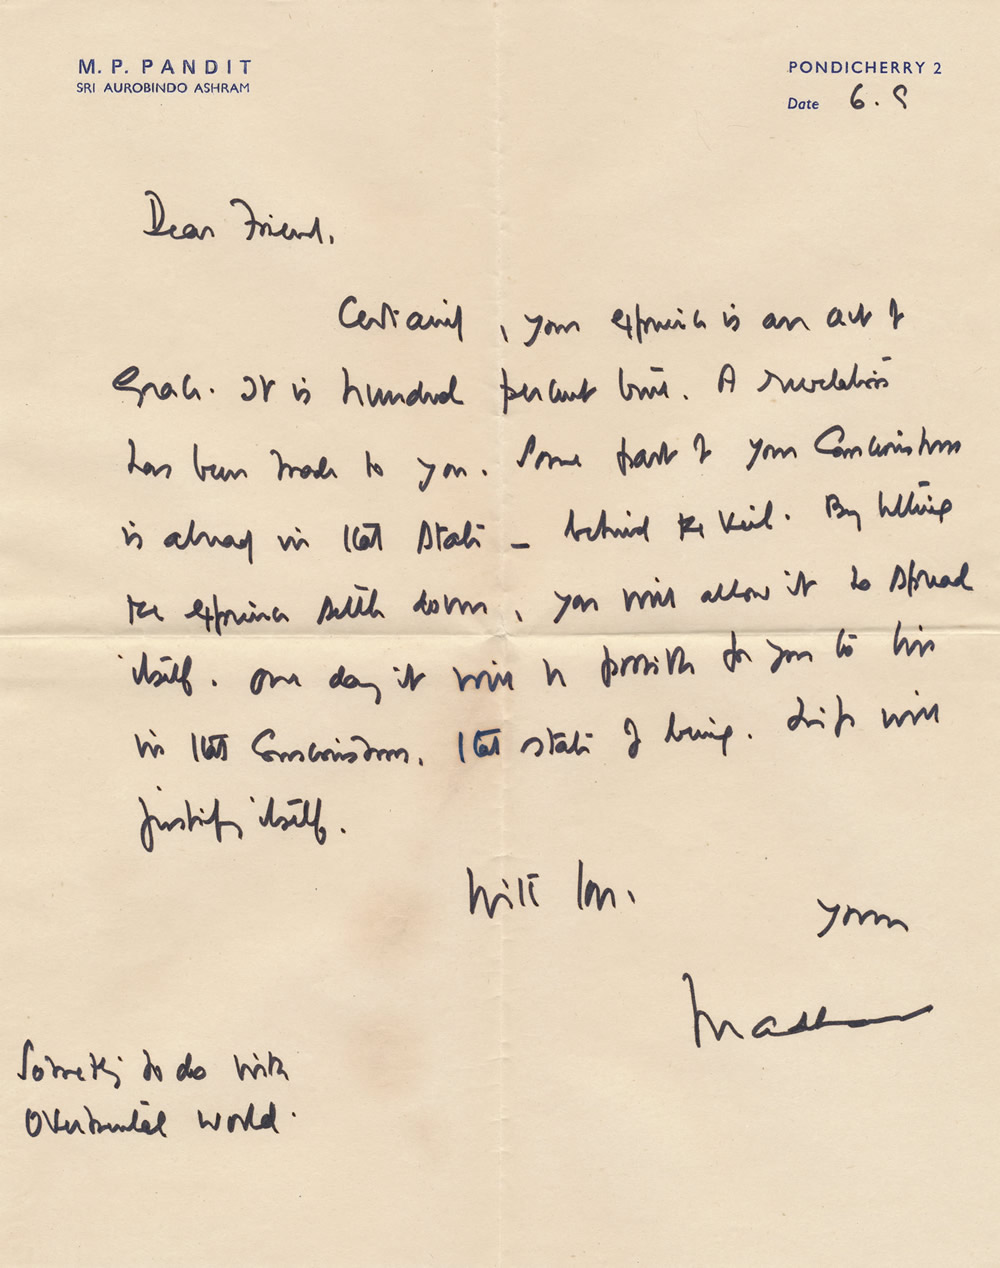 M. P. PANDIT
SRI AUROBINDO ASHRAM
PONDICHERRY 2
Date 6.9
Dear Friend,
Certainly, your experience is an act of
Grace. It is hundred percent true. A revelation
has been made to you. Some part of your Consciousness
is already in that state – behind the veil. By letting
the experience settle down, you will allow it to spread
itself. One day it will be possible for you to live
in that Consciousness, that state of being. Life will
justify itself.
With love,
Yours
Madhav
Something to do with
Overmental world.